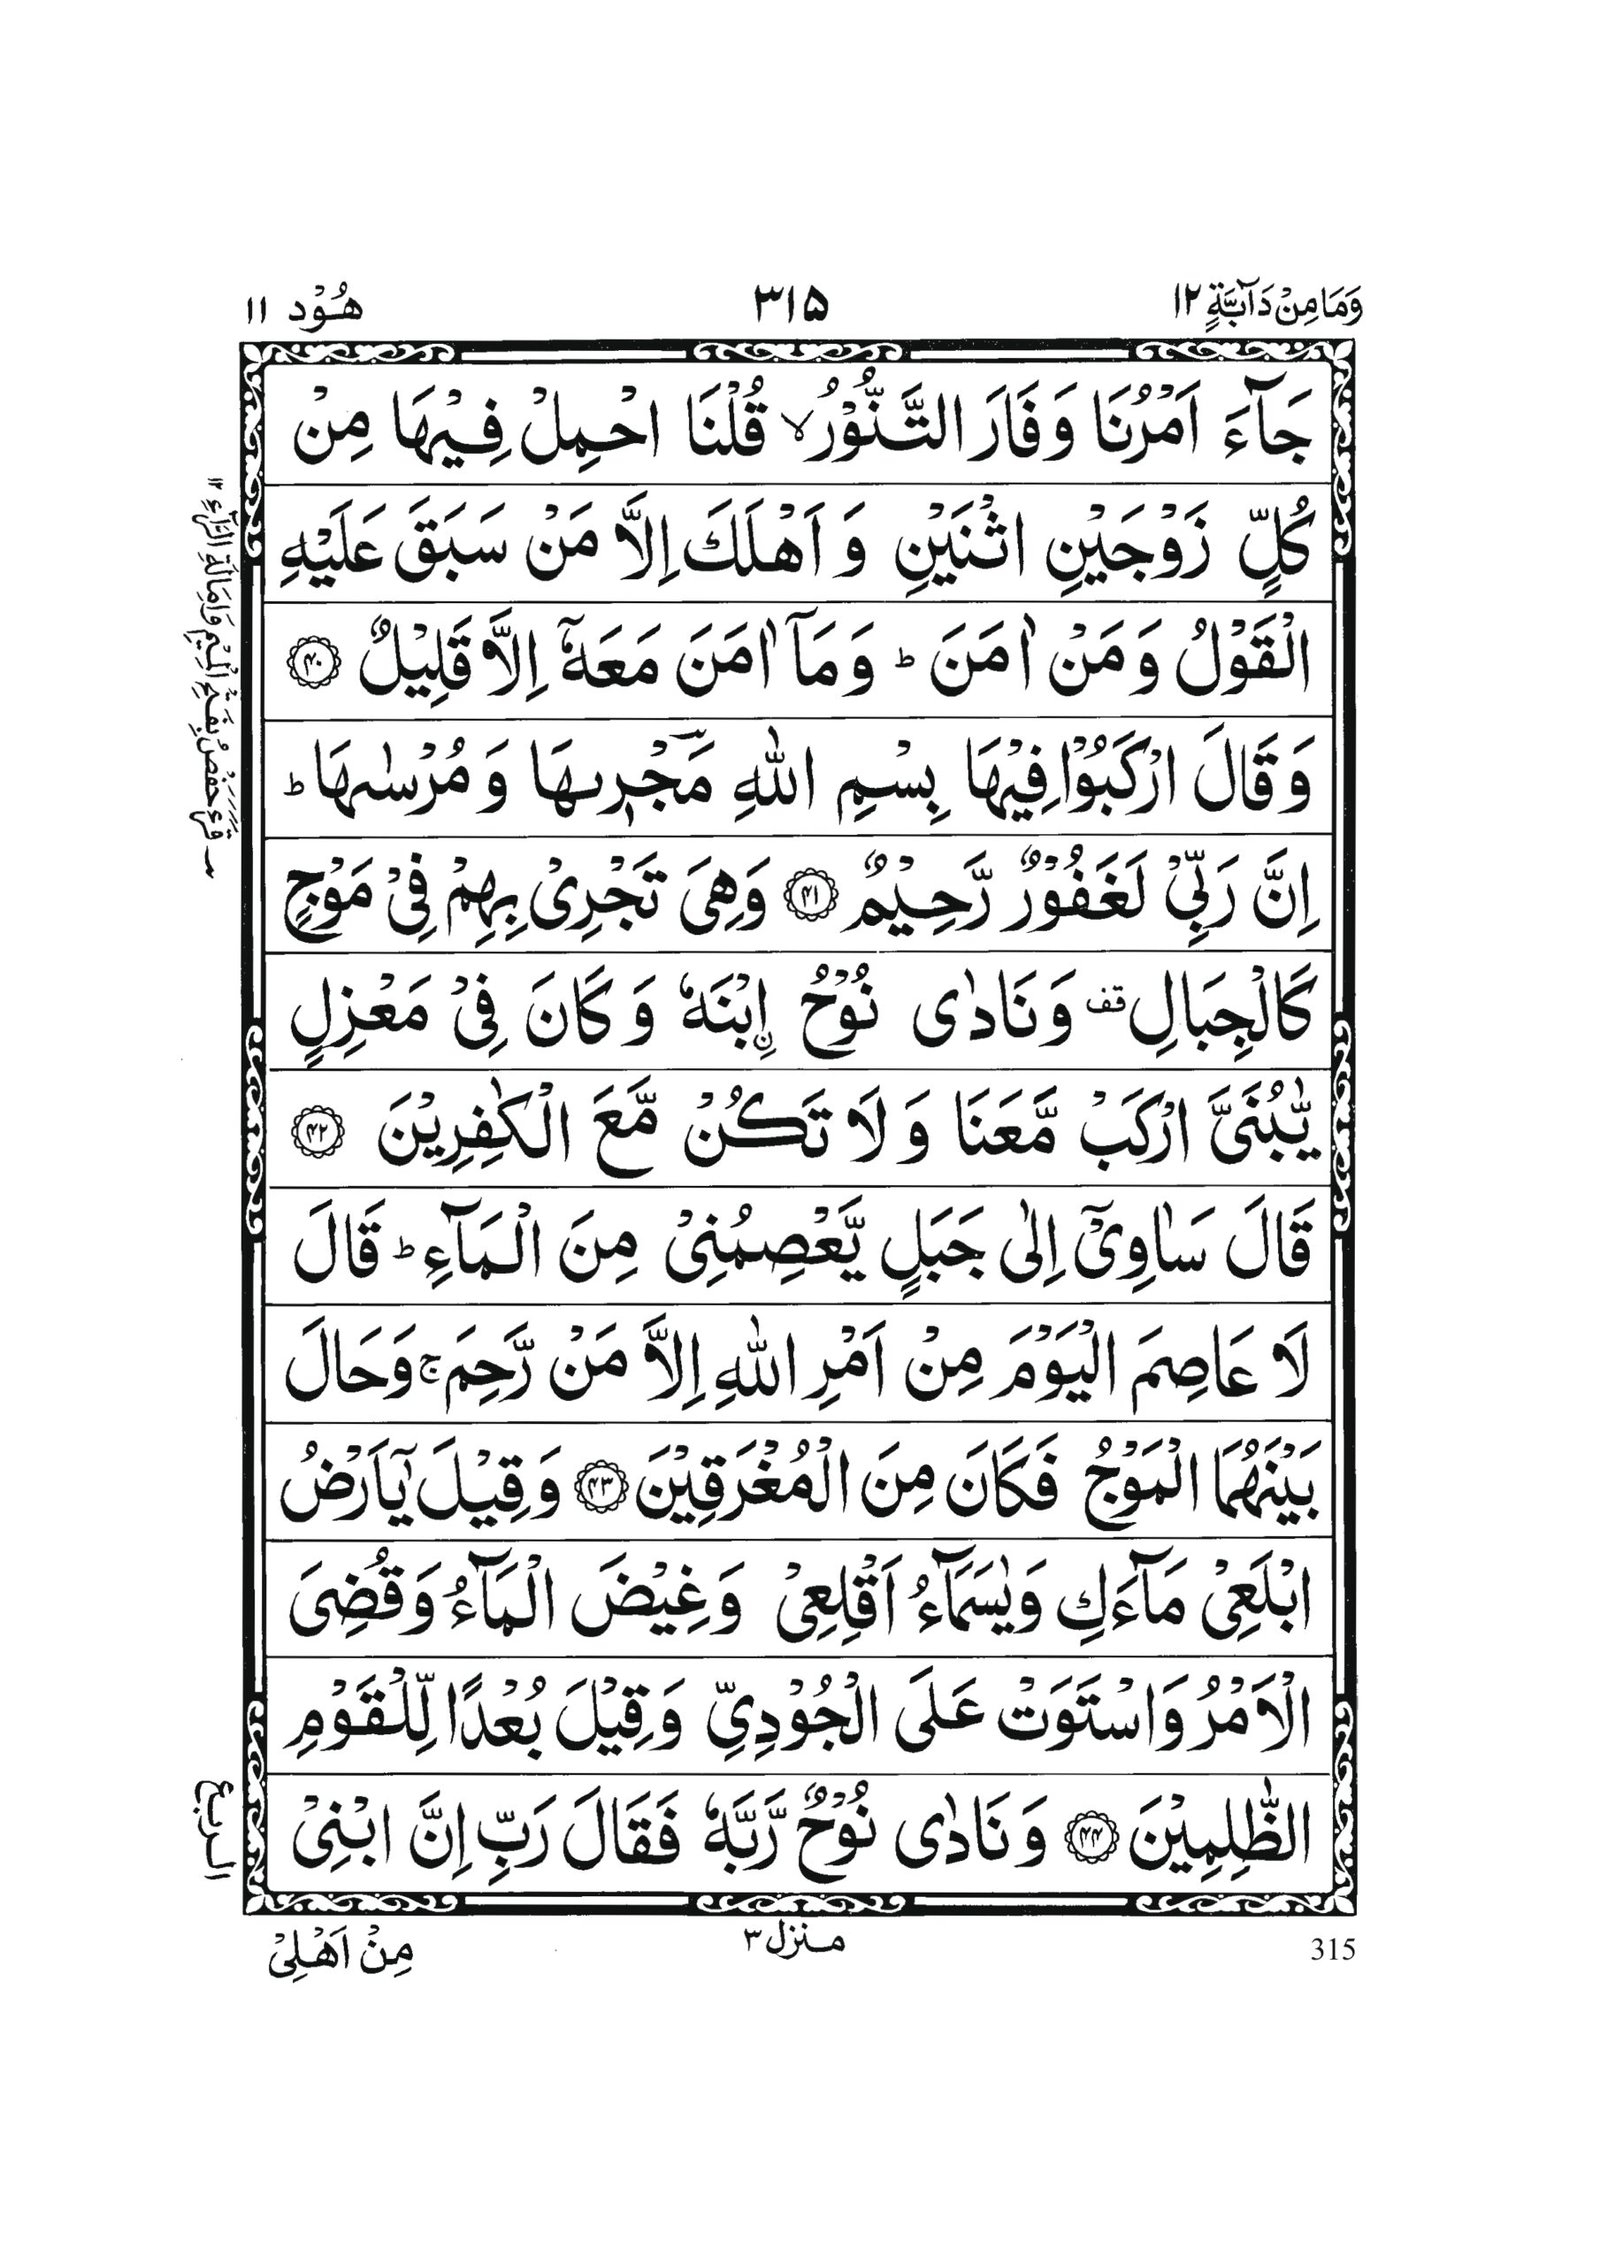 وَمَا مِنْ دَآبَّةٍ ١٢
٣١٥
هُوْد ١١
جَآءَ اَمْرُنَا وَفَارَ التَّنُّوْرُ ۙ قُلْنَا احْمِلْ فِيْهَا مِنْ
كُلٍّ زَوْجَيْنِ اثْنَيْنِ وَاَهْلَكَ اِلَّا مَنْ سَبَقَ عَلَيْهِ
الْقَوْلُ وَمَنْ اٰمَنَ ؕ وَمَاۤ اٰمَنَ مَعَهٗۤ اِلَّا قَلِيْلٌ ۝۴۰
وَقَالَ ارْكَبُوْا فِيْهَا بِسْمِ اللّٰهِ مَجْرٖىهَا وَمُرْسٰىهَا ؕ
اِنَّ رَبِّيْ لَغَفُوْرٌ رَّحِيْمٌ ۝۴۱ وَهِىَ تَجْرِىْ بِهِمْ فِىْ مَوْجٍ
كَالْجِبَالِ قف وَنَادٰى نُوْحُ اۨبْنَهٗ وَكَانَ فِىْ مَعْزِلٍ
يّٰبُنَىَّ ارْكَبْ مَّعَنَا وَلَا تَكُنْ مَّعَ الْكٰفِرِيْنَ ۝۴۲
قَالَ سَاٰوِىْۤ اِلٰى جَبَلٍ يَّعْصِمُنِىْ مِنَ الْمَآءِ ؕ قَالَ
لَا عَاصِمَ الْيَوْمَ مِنْ اَمْرِ اللّٰهِ اِلَّا مَنْ رَّحِمَ ۚ وَحَالَ
بَيْنَهُمَا الْمَوْجُ فَكَانَ مِنَ الْمُغْرَقِيْنَ ۝۴۳ وَقِيْلَ يٰۤاَرْضُ
ابْلَعِىْ مَآءَكِ وَيٰسَمَآءُ اَقْلِعِىْ وَغِيْضَ الْمَآءُ وَقُضِىَ
الْاَمْرُ وَاسْتَوَتْ عَلَى الْجُوْدِىِّ وَقِيْلَ بُعْدًا لِّلْقَوْمِ
الظّٰلِمِيْنَ ۝۴۴ وَنَادٰى نُوْحٌ رَّبَّهٗ فَقَالَ رَبِّ اِنَّ ابْنِىْ
قرء حفص بفتح الميم وامالة الراء ١٢
الربع
315
منزل ٣
مِنْ اَهْلِىْ